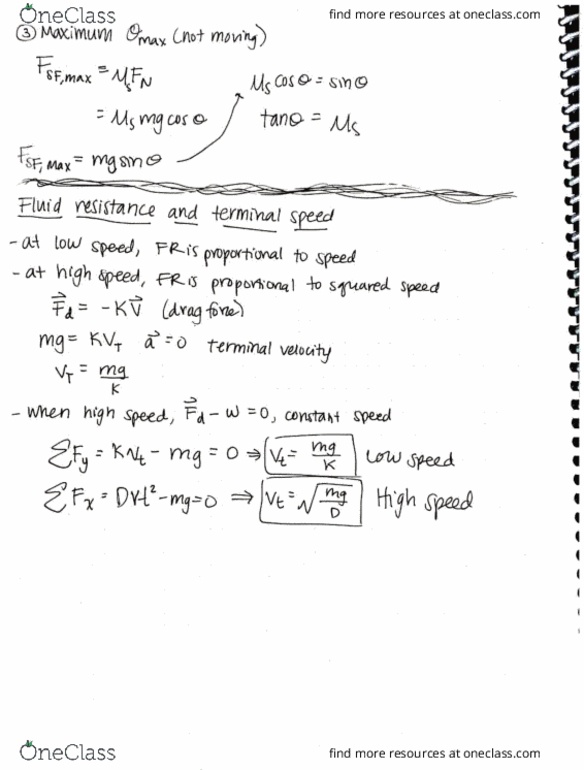 OneClass find more resources at oneclass.com
③ Maximum θmax (not moving)
FSF,max = μsFN
μs cosθ = sinθ
= μs mg cosθ
tanθ = μs
FSF,Max = mg sinθ
Fluid resistance and terminal speed
- at low speed, FR is proportional to speed
- at high speed, FR is proportional to squared speed
F⃗d = -KV⃗ (drag force)
mg = KVT a⃗ = 0 terminal velocity
VT = mg/K
- When high speed, F⃗d - w = 0, constant speed
∑Fy = KVt - mg = 0 ⇒ Vt = mg/K Low speed
∑Fx = DVt² - mg = 0 ⇒ Vt = √(mg/D) High speed
OneClass find more resources at oneclass.com